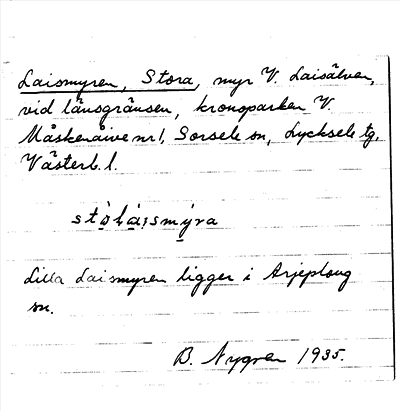 Laismyren, Stora, myr V. Laisälven,
vid länsgränsen, kronoparken V.
Måskenåive nr 1, Sorsele sn, Lycksele tg,
Västerb. l.
stòlái̯smýra
Lilla Laismyren ligger i Arjeploug
sn.
B. Nygren 1935.